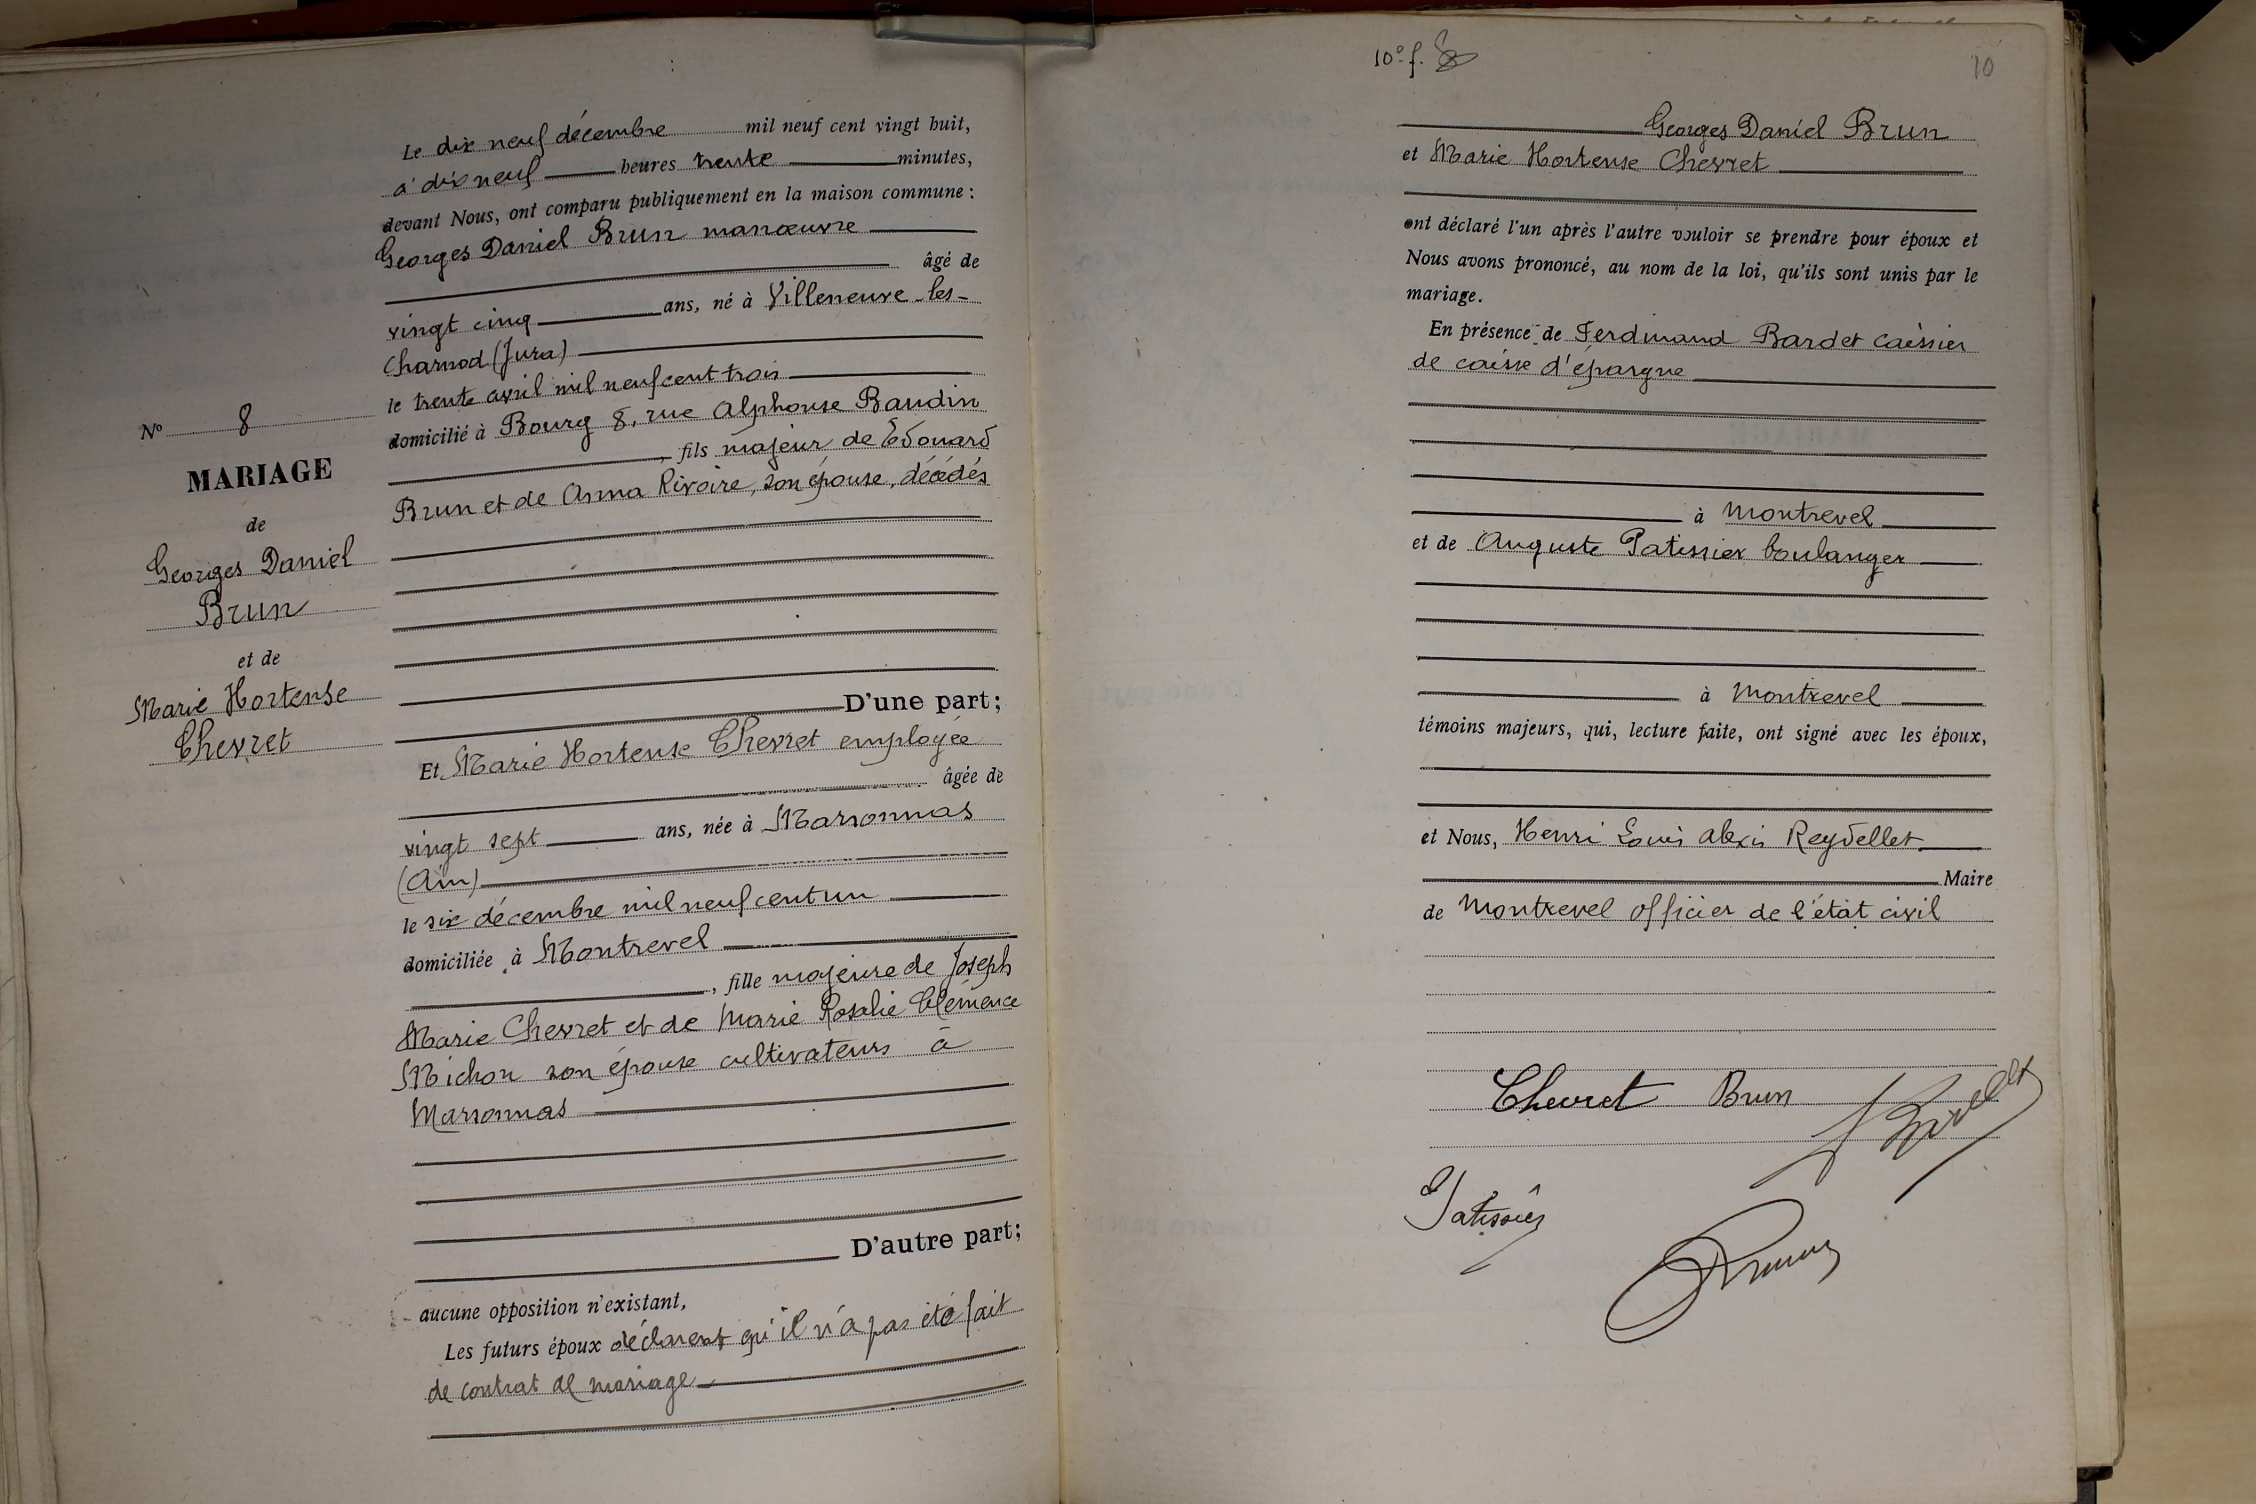 Le dix neuf décembre mil neuf cent vingt huit,
à dix neuf heures trente minutes,
devant Nous, ont comparu publiquement en la maison commune :
Georges Daniel Brun manœuvre
âgé de
vingt cinq ans, né à Villeneuve-les-
Charnod (Jura)
le trente avril mil neuf cent trois
domicilié à Bourg 8, rue Alphonse Baudin
, fils majeur de Edouard
Brun et de Anna Rivoire, son épouse, décédés
D'une part;
Et Marie Hortense Chevret employée
âgée de
vingt sept ans, née à Marsonnas
(Ain)
le six décembre mil neuf cent un
domiciliée à Montrevel
, fille majeure de Joseph
Marie Chevret et de Marie Rosalie Clémence
Michon son épouse cultivateurs à
Marsonnas
D'autre part;
aucune opposition n'existant,
Les futurs époux déclarent qu'il n'a pas été fait
de contrat de mariage
N° 8
MARIAGE
de
Georges Daniel
Brun
et de
Marie Hortense
Chevret
10° f.
10
Georges Daniel Brun
et Marie Hortense Chevret
ont déclaré l'un après l'autre vouloir se prendre pour époux et
Nous avons prononcé, au nom de la loi, qu'ils sont unis par le
mariage.
En présence de Ferdinand Bardet caissier
de caisse d'épargne
à Montrevel
et de Auguste Patissier boulanger
à Montrevel
témoins majeurs, qui, lecture faite, ont signé avec les époux,
et Nous, Henri Louis Alexis Reydellet
Maire
de Montrevel officier de l'état civil
Chevret Brun
Patissier